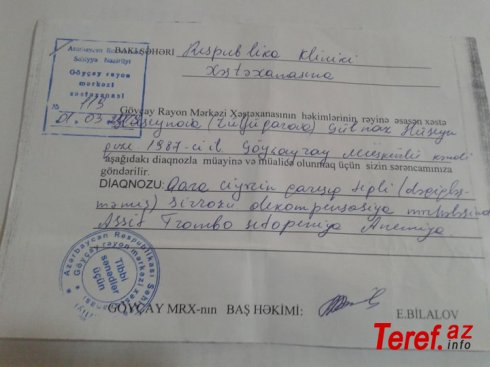 Azərbaycan Respublikası
Səhiyyə Nazirliyi
Göyçay rayon
mərkəzi
xəstəxanası
№ 113
21.03
BAKI ŞƏHƏRİ Respublika Kliniki
xəstəxanasına
Göyçay Rayon Mərkəzi Xəstəxanasının həkimlərinin rəyinə əsasən xəstə
Hüseynova (Zülfüqarova) Gülnar Hüseyn
qızı 1987-ci il Göyçay ray kəndi
aşağıdakı diaqnozla müayinə və müalicə olunmaq üçün sizin sərəncamınıza
göndərilir.
DİAQNOZU: Qara ciyərin qarışıq tipli (dəqiqləş-
məmiş) sirrozu dekompensasiya mərhələsində
Assit Trombositopeniya Anemiya
Azərbaycan Respublikası
Göyçay rayon mərkəzi
Tibbi
sənədlər
üçün
GÖYÇAY MRX-nın BAŞ HƏKİMİ: E.BİLALOV
Teref.az
.info